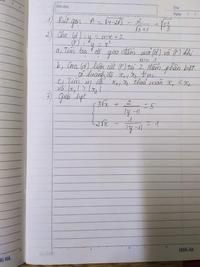 1) Rút gọn: A = √(4-2√3) - 2/(√3+1) + 
2) Cho (d): y = mx + 2
(P): y = x²
a, Tìm tọa độ giao điểm của (d) và (P) khi
m = 1
b, (d) luôn cắt (P) tại 2 điểm phân biệt
có hoành độ x₁, x₂ ∀m
c, Tìm m để x₁, x₂ thỏa mãn x₁ < x₂
và |x₁| > |x₂|
3) Giải hpt
3√x + 2/|y-1| = 5
2√x - 1/|y-1| = 1